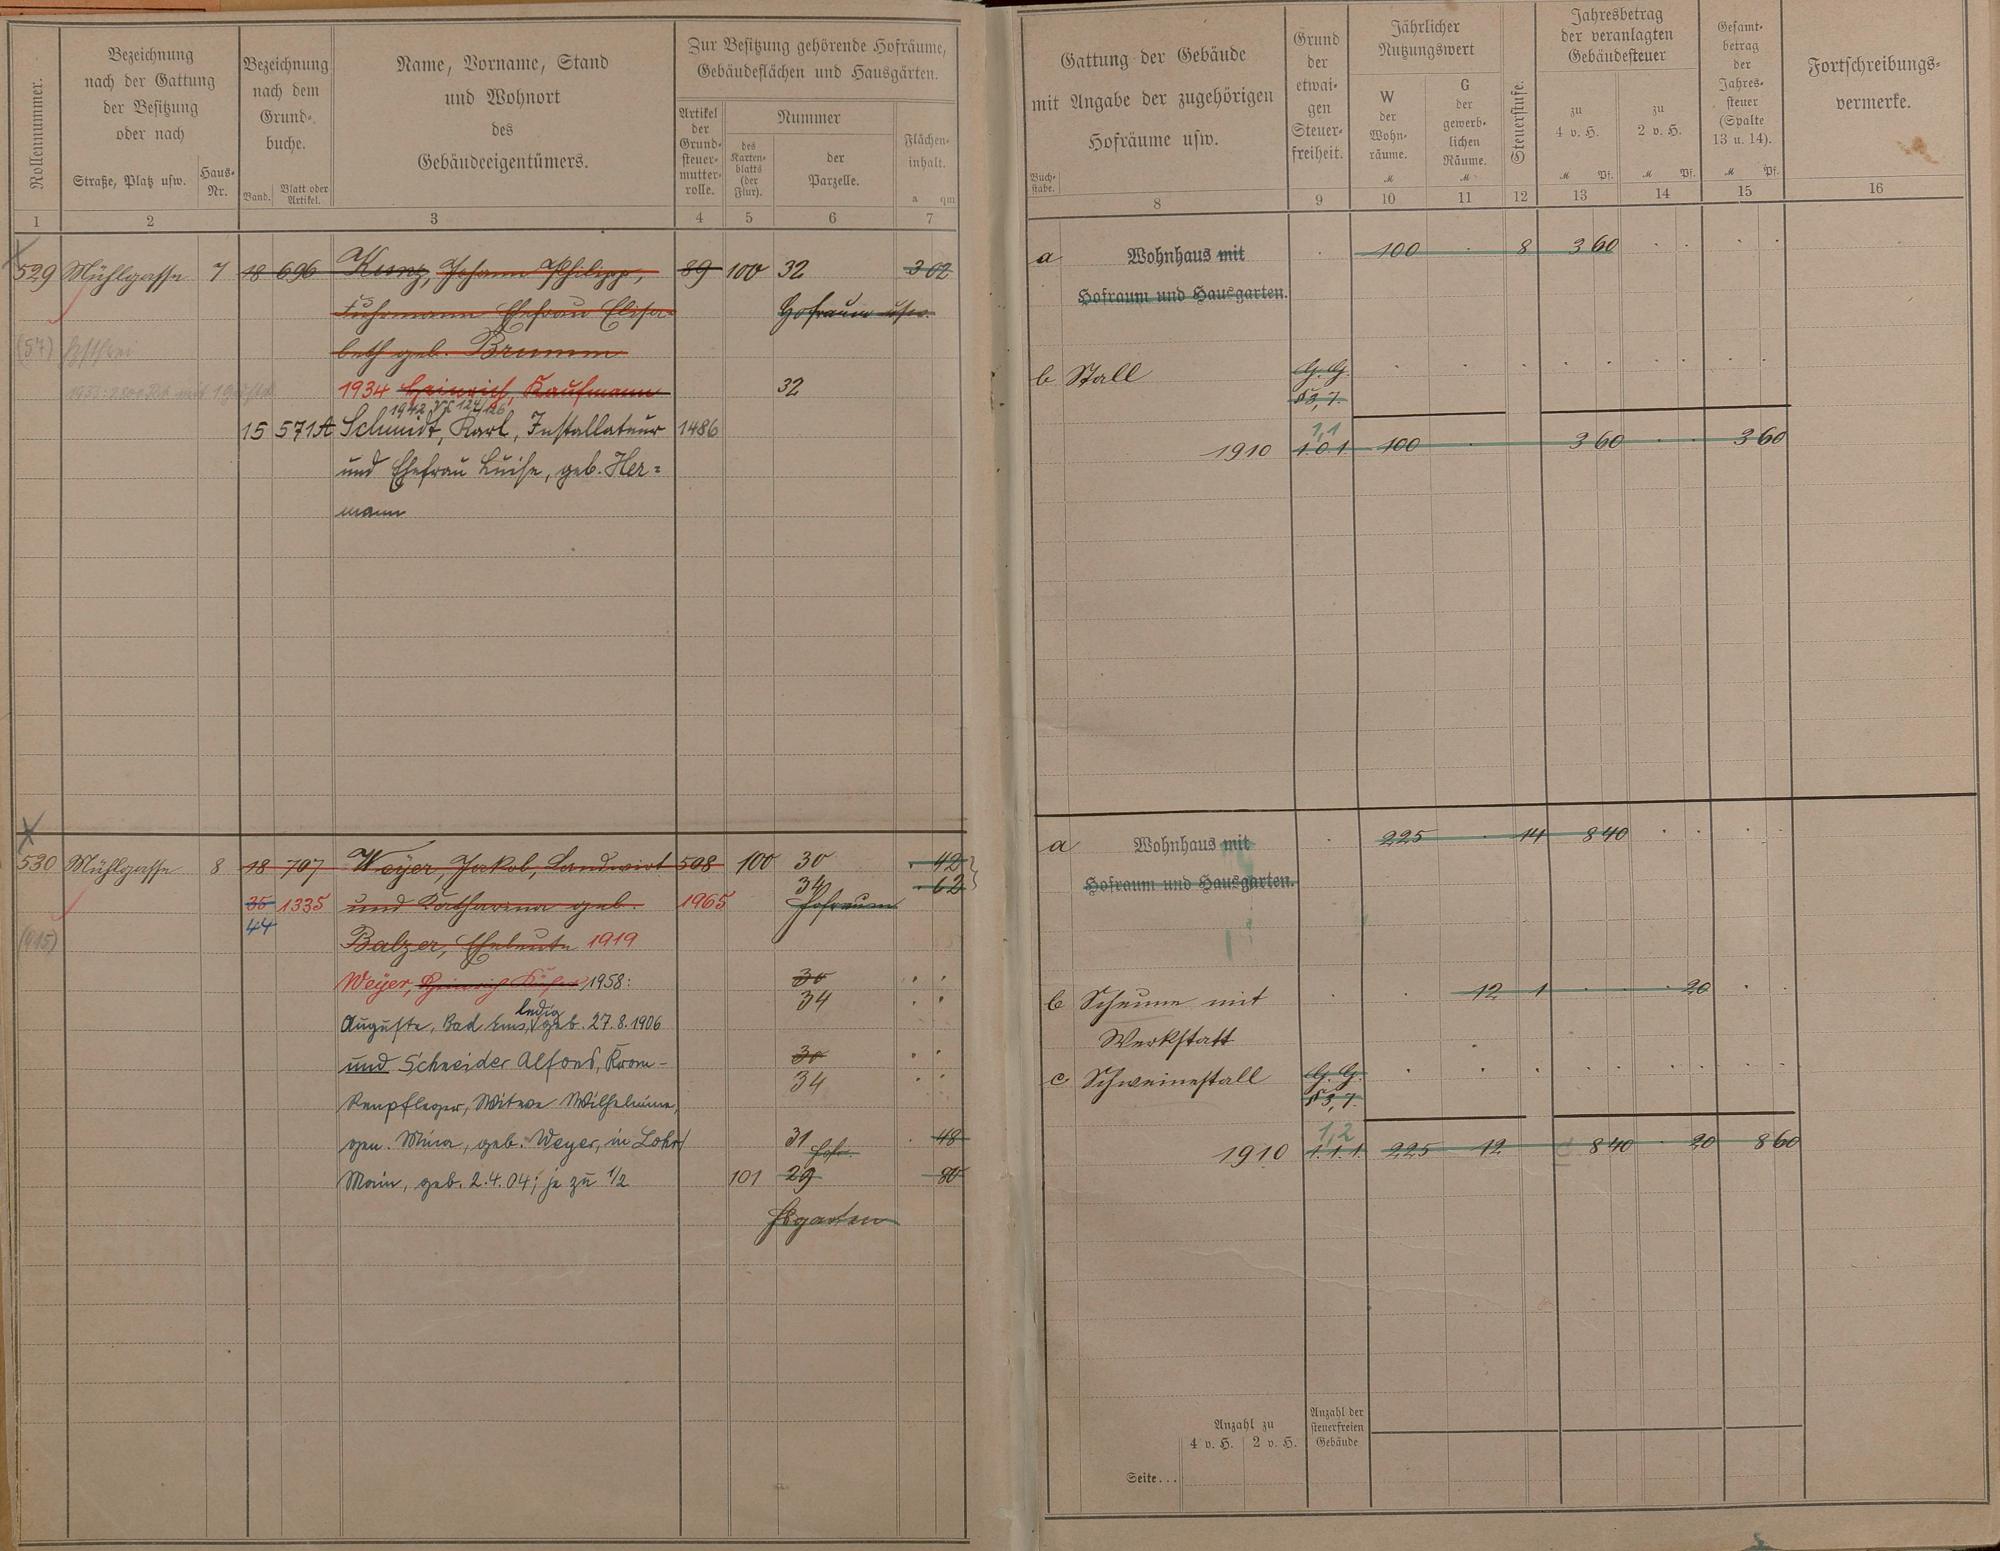 Rollennummer.
Bezeichnung
nach der Gattung
der Besitzung
oder nach
Straße, Platz usw.
Haus-
Nr.
Bezeichnung
nach dem
Grund-
buche.
Band.
Blatt oder
Artikel.
Name, Vorname, Stand
und Wohnort
des
Gebäudeeigentümers.
Zur Besitzung gehörende Hofräume,
Gebäudeflächen und Hausgärten.
Artikel
der
Grund-
steuer-
mutter-
rolle.
Nummer
des
Karten-
blatts
(der
Flur).
der
Parzelle.
Flächen-
inhalt.
a qm
1 2 3 4 5 6 7
529 Mühlgasse 7 18 696 Kunz, Johann Philipp, 89 100 32 3 02
Fuhrmann Ehefrau Elisa- Hofraum usw.
(57)
beth geb. Brumm
1934 Heinrich, Kaufmann 32
1942
15 571A Schmidt, Karl, Installateur 1486
und Ehefrau Luise, geb. Her=
mann
530 Mühlgasse 8 18 707 Weyer, Jakob, Landwirt 508 100 30 42
34 62
35 1335 und Katharina geb. 1965 Hofraum
44
Balzer, Eheleute 1919
Weyer, 1958: 30
34
ledig
Auguste, Bad Ems, geb. 27.8.1906
und Schneider Alfons, Kran- 30
34
kenpfleger, Witwe Wilhelmine,
gen. Mina, geb. Weyer, in Lohr/ 31 48
Hofr.
Main, geb. 2.4.04; je zu 1/2 101 29 80
Hsgarten
Gattung der Gebäude
mit Angabe der zugehörigen
Hofräume usw.
Buch-
stabe.
Grund
der
etwai-
gen
Steuer-
freiheit.
Jährlicher
Nutzungswert
W
der
Wohn-
räume.
M
G
der
gewerb-
lichen
Räume.
M
Steuerstufe.
Jahresbetrag
der veranlagten
Gebäudesteuer
zu
4 v. H.
M Pf.
zu
2 v. H.
M Pf.
Gesamt-
betrag
der
Jahres-
steuer
(Spalte
13 u. 14).
M Pf.
Fortschreibungs-
vermerke.
8 9 10 11 12 13 14 15 16
a Wohnhaus mit 100 8 3 60
Hofraum und Hausgarten.
b Stall G. G.
§ 3, 7.
1,1
1910 1.0.1 100 3 60 3 60
a Wohnhaus mit 225 14 8 40
Hofraum und Hausgarten.
b Scheune mit 12 1 20
Werkstatt
c Schweinestall G. G.
§ 3, 7.
1,2
1910 1.1.1 225 12 8 40 20 8 60
Anzahl zu
4 v. H. 2 v. H.
Anzahl der
steuerfreien
Gebäude
Seite...